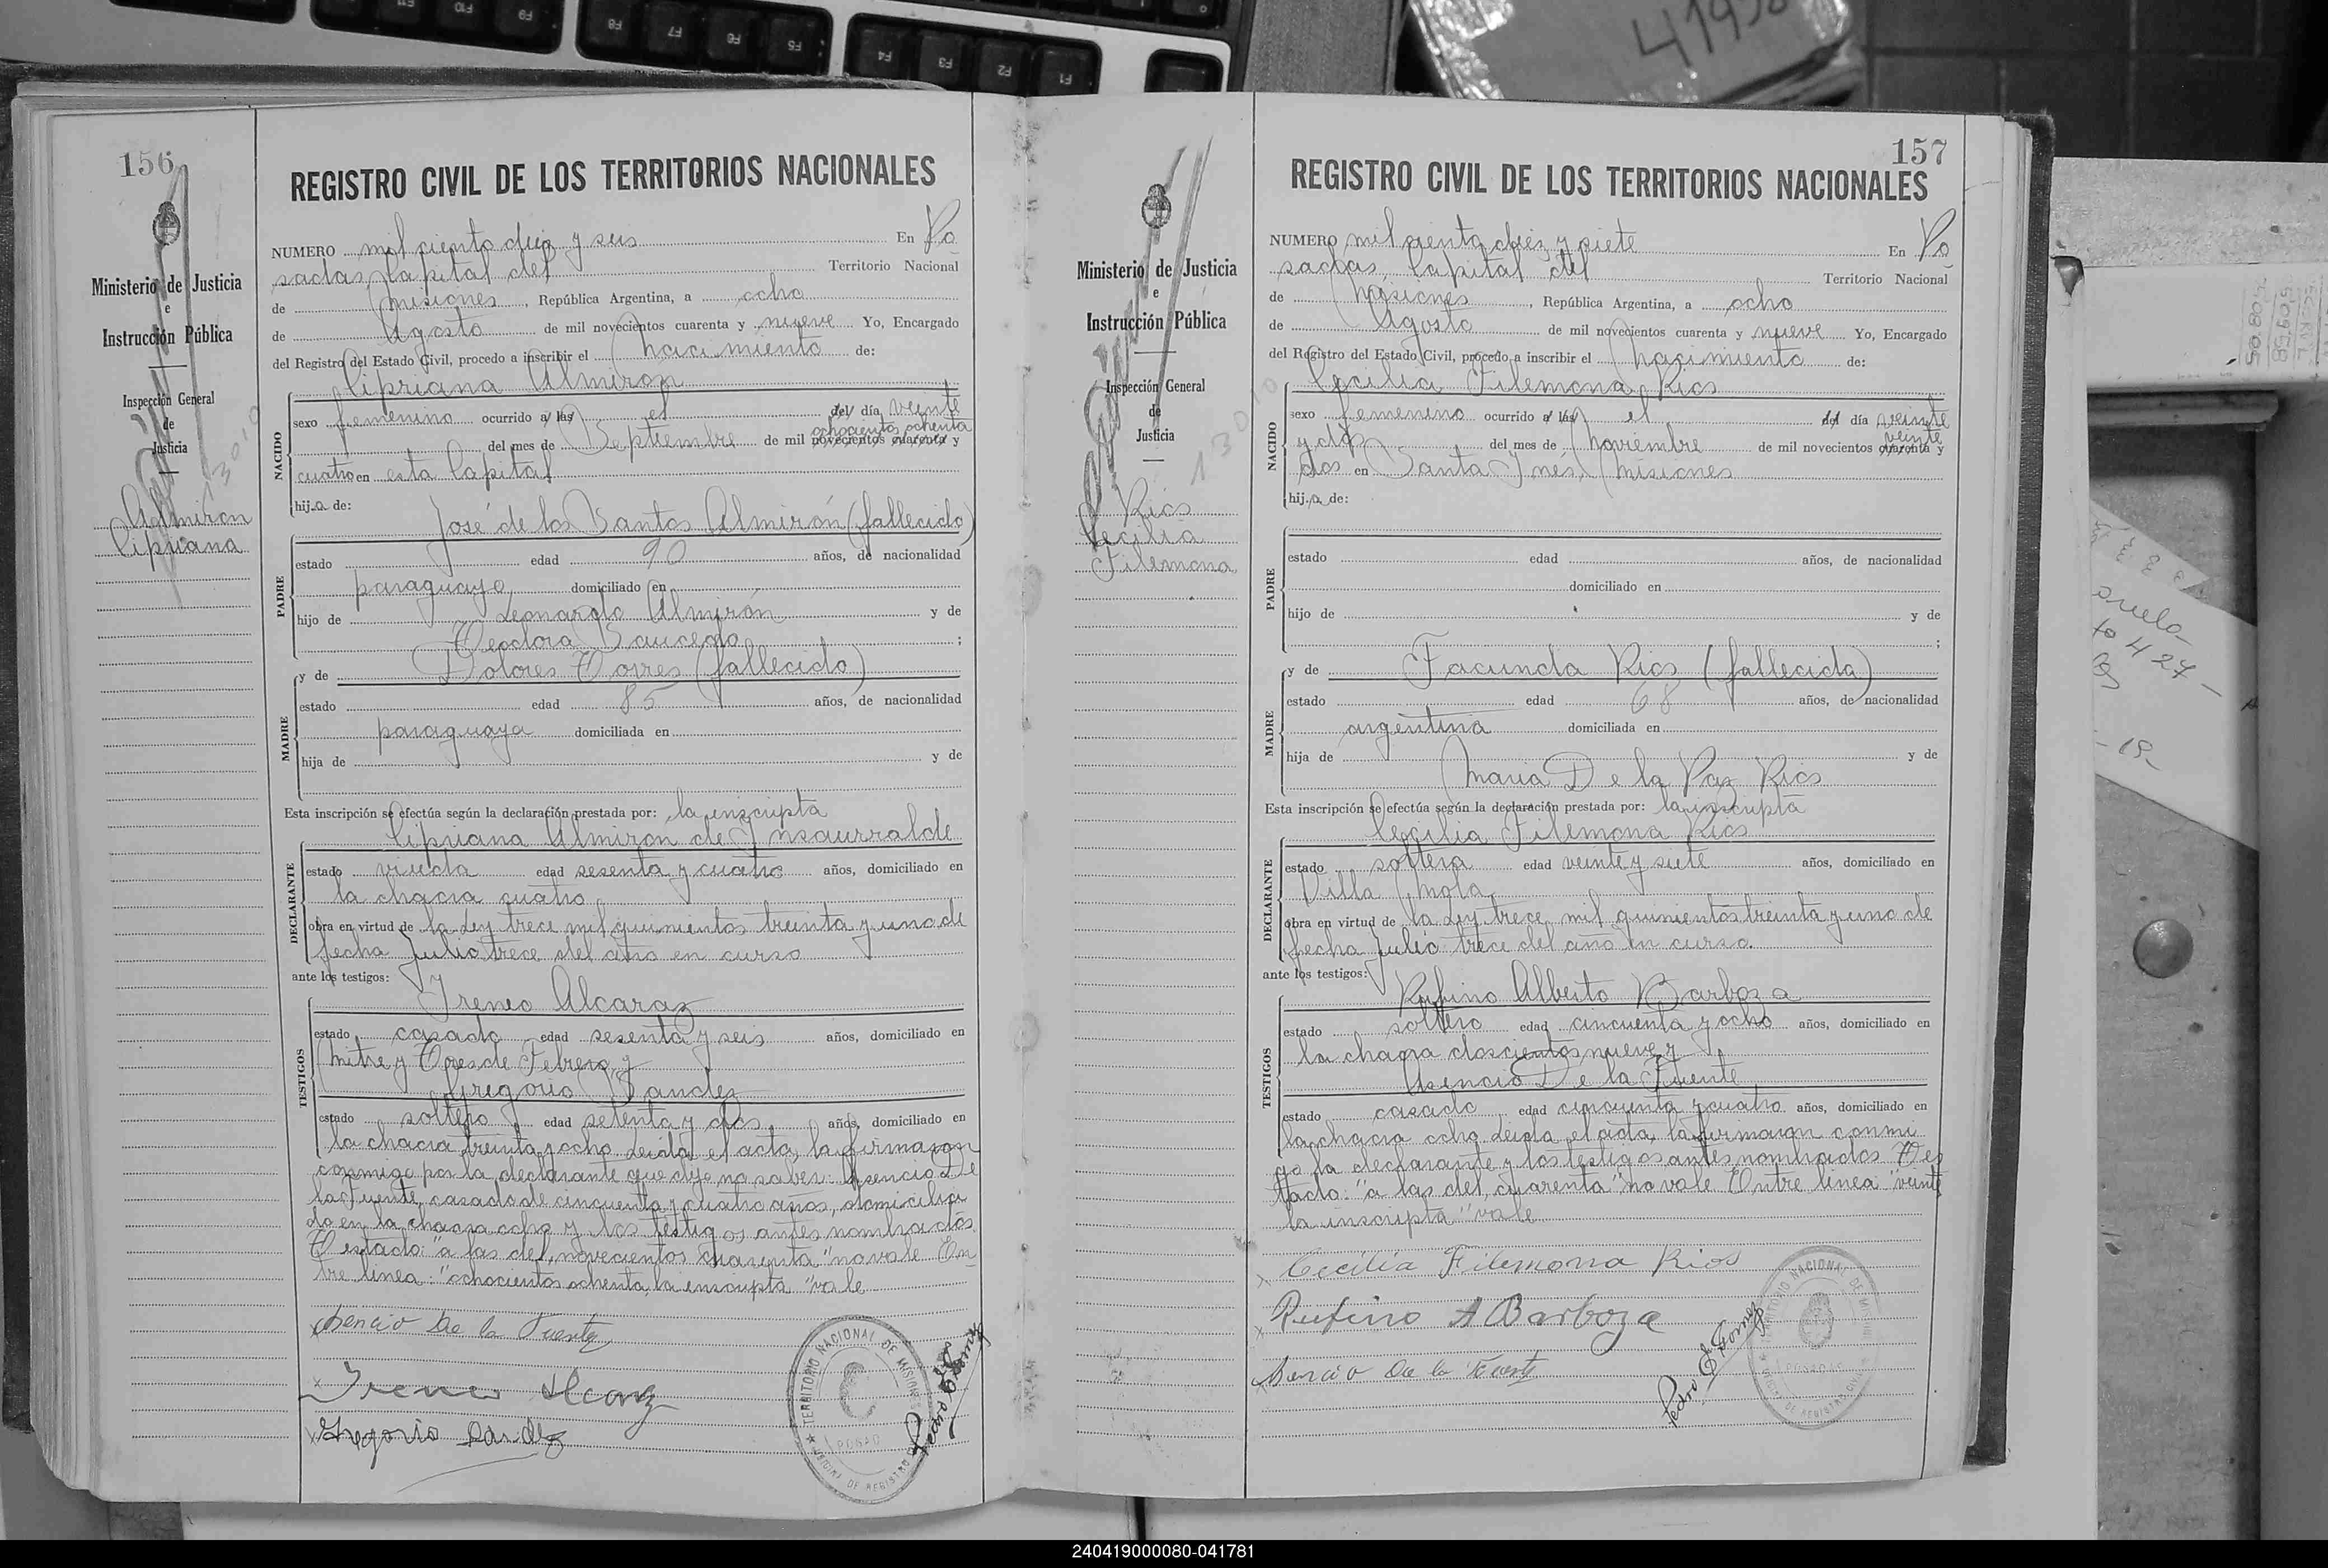 156
REGISTRO CIVIL DE LOS TERRITORIOS NACIONALES
Ministerio de Justicia
e
Instrucción Pública
Inspección General
de
Justicia
13010
Almiron
Cipriana
NUMERO mil ciento diez y seis En Po
sadas, Capital del Territorio Nacional
de Misiones, República Argentina, a ocho
de Agosto de mil novecientos cuarenta y nueve Yo, Encargado
del Registro del Estado Civil, procedo a inscribir el Nacimiento de:
Cipriana Almiron
NACIDO
sexo femenino ocurrido a las el del día veinte
ochocientos ochenta
del mes de Septiembre de mil novecientos cuarenta y
cuatro en esta Capital
hija de:
José de los Santos Almirón (fallecido)
PADRE
estado edad 90 años, de nacionalidad
paraguayo, domiciliado en
hijo de Leonardo Almirón y de
Teodora Saucedo ;
y de Dolores Torres (fallecida)
MADRE
estado edad 85 años, de nacionalidad
paraguaya domiciliada en
hija de y de
Esta inscripción se efectúa según la declaración prestada por: la inscripta
Cipriana Almiron de Insaurralde
DECLARANTE
estado viuda edad sesenta y cuatro años, domiciliado en
la chacra cuatro
obra en virtud de la Ley trece mil quinientos treinta y uno de
fecha Julio trece del año en curso
ante los testigos:
Ireneo Alcaraz
TESTIGOS
estado casado edad sesenta y seis años, domiciliado en
Mitre y Tres de Febrero y
Gregorio Sandez
estado soltero edad setenta y dos años, domiciliado en
la chacra treinta y ocho. Leida el acta, la firmaron
conmigo por la declarante que dijo no saber: Asencio De
la Fuente, casado de cincuenta y cuatro años, domicilia
do en la chacra ocho y los testigos antes nombrados
Testado: "a las del, novecientos cuarenta" no vale. En
tre linea: "ochocientos ochenta, la inscripta" vale
Asencio De la Fuente
Ireneo Alcaraz
Gregorio Sandez
TERRITORIO NACIONAL DE MISIONES
POSADAS
Pedro E Gomez
157
REGISTRO CIVIL DE LOS TERRITORIOS NACIONALES
Ministerio de Justicia
e
Instrucción Pública
Inspección General
de
Justicia
13010
Rios
Cecilia
Filemona
NUMERO mil ciento diez y siete En Po
sadas, Capital del Territorio Nacional
de Misiones, República Argentina, a ocho
de Agosto de mil novecientos cuarenta y nueve Yo, Encargado
del Registro del Estado Civil, procedo a inscribir el Nacimiento de:
Cecilia Filemona Rios
NACIDO
sexo femenino ocurrido a las el del día veinte
veinte
y dos del mes de Noviembre de mil novecientos cuarenta y
dos en Santa Ines, Misiones
hija de:
PADRE
estado edad años, de nacionalidad
domiciliado en
hijo de y de
;
y de Facunda Rios (fallecida)
MADRE
estado edad 68 años, de nacionalidad
argentina domiciliada en
hija de y de
Maria De la Paz Rios
Esta inscripción se efectúa según la declaración prestada por: la inscripta
Cecilia Filemona Rios
DECLARANTE
estado soltera edad veinte y siete años, domiciliado en
Villa Mola
obra en virtud de la Ley trece mil quinientos treinta y uno de
fecha Julio trece del año en curso.
ante los testigos:
Rufino Alberto Barboza
TESTIGOS
estado soltero edad cincuenta y ocho años, domiciliado en
la chacra doscientos nueve y
Asencio De la Fuente
estado casado edad cincuenta y cuatro años, domiciliado en
la chacra ocho. Leida el acta, la firmaron conmi
go la declarante y los testigos antes nombrados. Tes
tado: "a las del, cuarenta" no vale. Entre linea "veinte
la inscripta" vale
Cecilia Filemona Rios
Rufino A Barboza
Asencio De la Fuente
Pedro E Gomez
TERRITORIO NACIONAL DE MISIONES
POSADAS
240419000080-041781